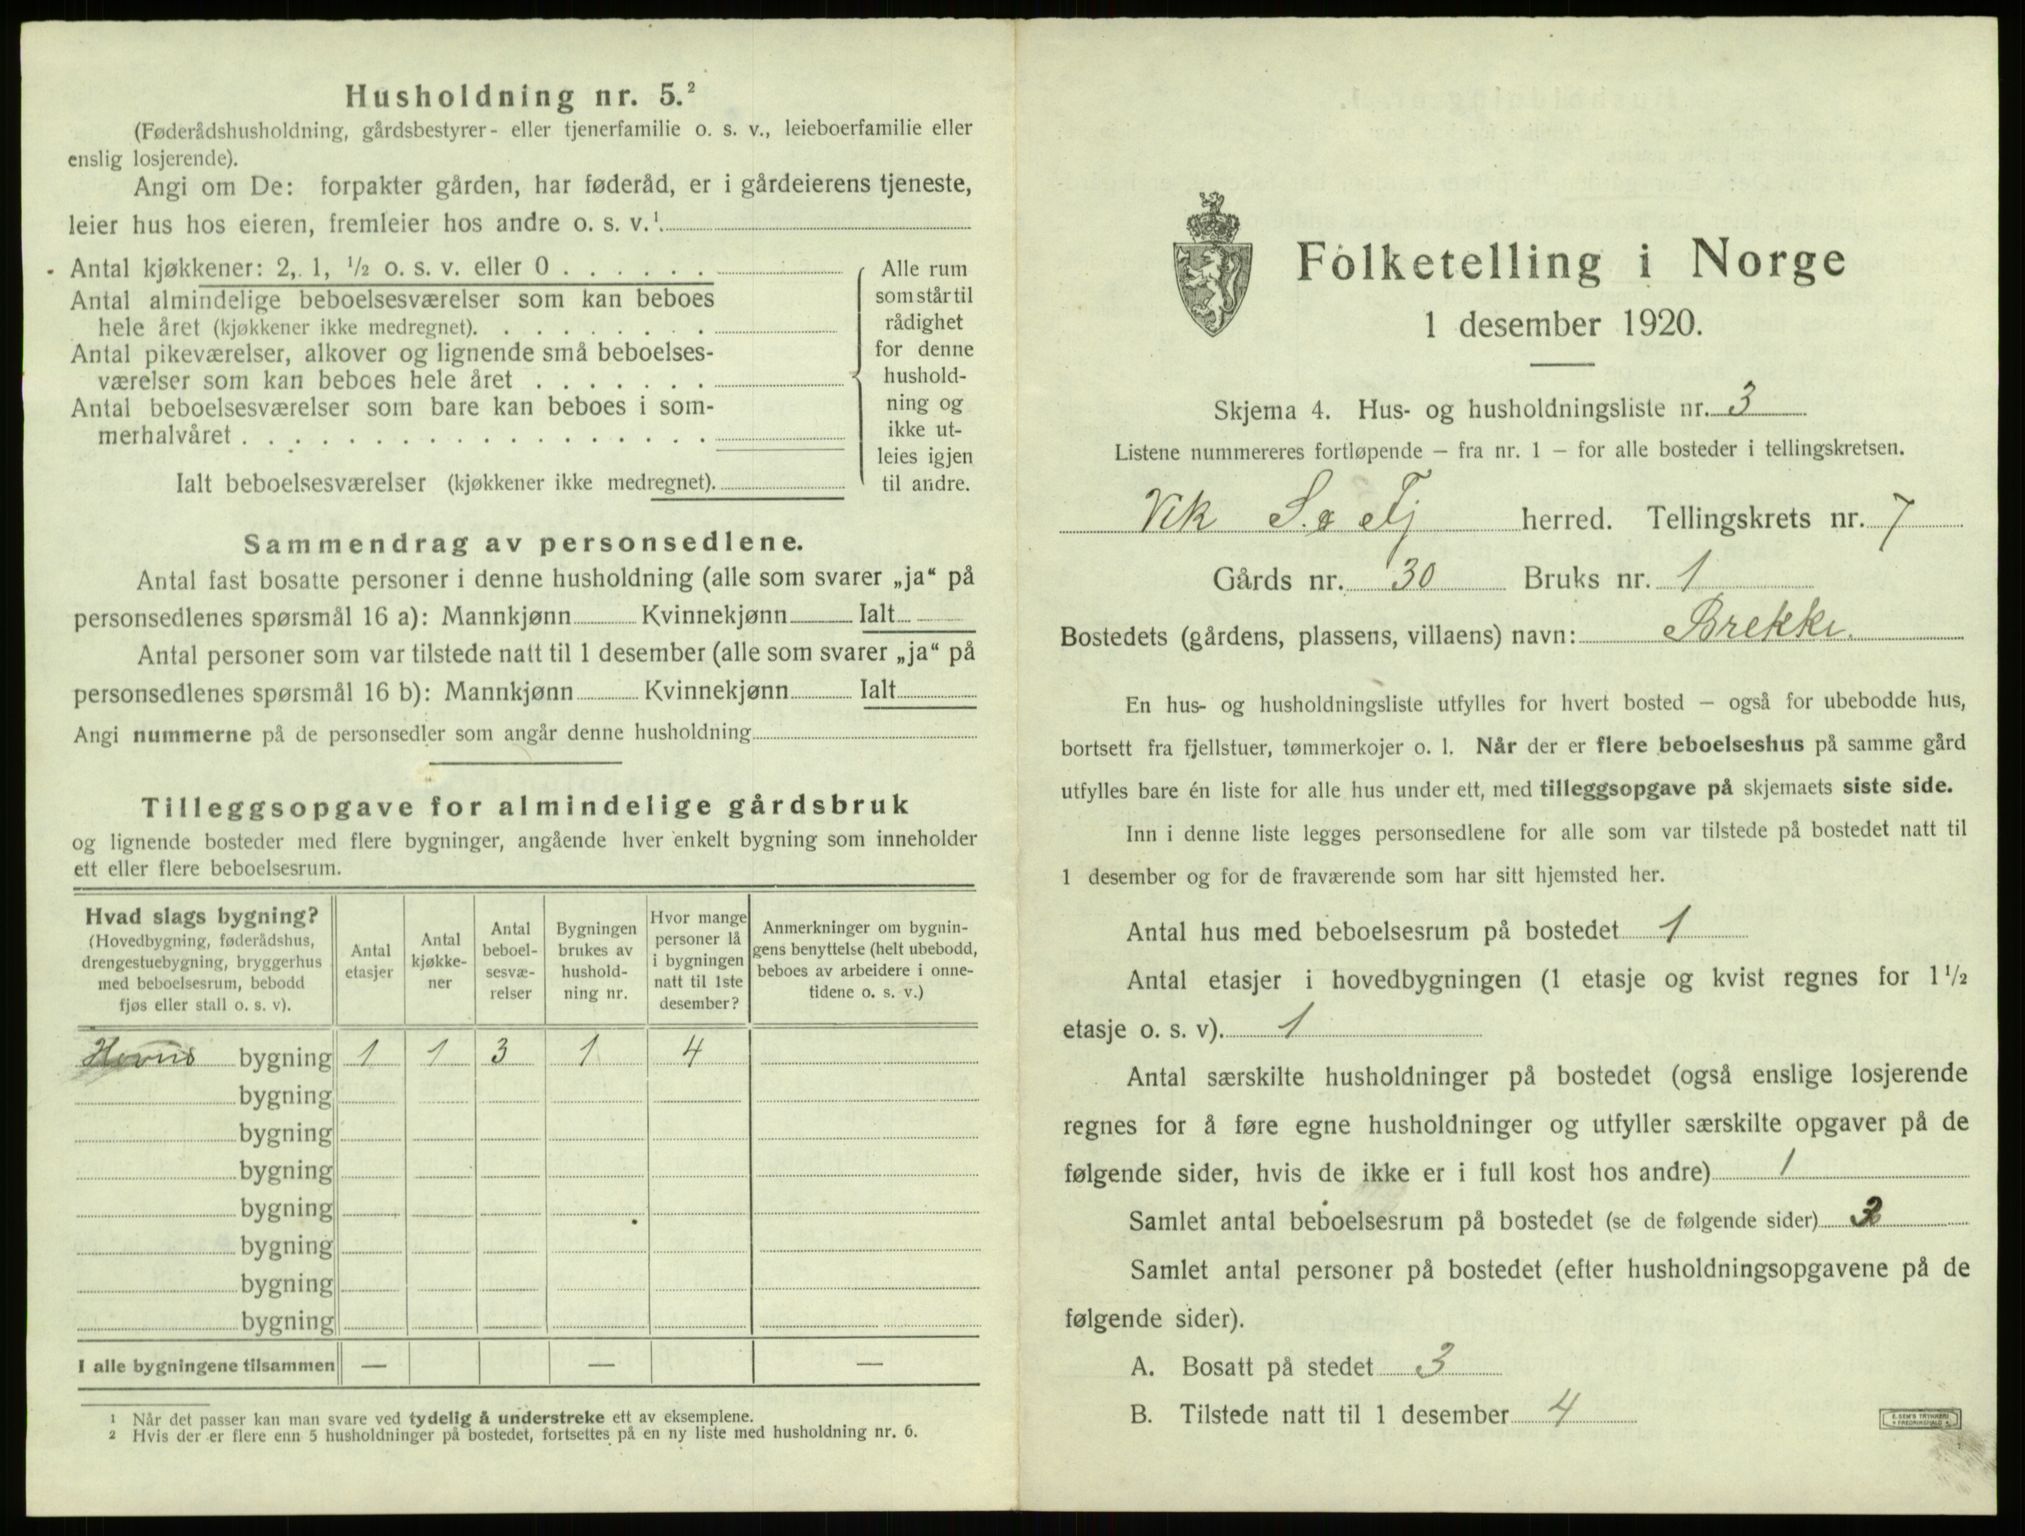 Husholdning nr. 5.²
(Føderådshusholdning, gårdsbestyrer- eller tjenerfamilie o. s. v., leieboerfamilie eller
enslig losjerende).
Angi om De: forpakter gården, har føderåd, er i gårdeierens tjeneste,
leier hus hos eieren, fremleier hos andre o. s. v.¹
Antal kjøkkener: 2, 1, ½ o. s. v. eller 0 . . . . . .
Antal almindelige beboelsesværelser som kan beboes
hele året (kjøkkener ikke medregnet). . . . . . . . .
Antal pikeværelser, alkover og lignende små beboelses-
værelser som kan beboes hele året . . . . . . .
Antal beboelsesværelser som bare kan beboes i som-
merhalvåret . . . . . . . . . . . . . . . . . .
Ialt beboelsesværelser (kjøkkener ikke medregnet).
Alle rum
som står til
rådighet
for denne
hushold-
ning og
ikke ut-
leies igjen
til andre.
Sammendrag av personsedlene.
Antal fast bosatte personer i denne husholdning (alle som svarer „ja“ på
personsedlenes spørsmål 16 a): Mannkjønn Kvinnekjønn Ialt
Antal personer som var tilstede natt til 1 desember (alle som svarer „ja“ på
personsedlenes spørsmål 16 b): Mannkjønn Kvinnekjønn Ialt
Angi nummerne på de personsedler som angår denne husholdning
Tilleggsopgave for almindelige gårdsbruk
og lignende bosteder med flere bygninger, angående hver enkelt bygning som inneholder
ett eller flere beboelsesrum.
Hvad slags bygning?
(Hovedbygning, føderådshus,
drengestuebygning, bryggerhus
med beboelsesrum, bebodd
fjøs eller stall o. s. v).
Antal
etasjer
Antal
kjøkke-
ner
Antal
beboel-
sesvæ-
relser
Bygningen
brukes av
hushold-
ning nr.
Hvor mange
personer lå
i bygningen
natt til 1ste
desember?
Anmerkninger om bygnin-
gens benyttelse (helt ubebodd,
beboes av arbeidere i onne-
tidene o. s. v.)
bygning 1 1 3 1 4
bygning
bygning
bygning
bygning
bygning
bygning
bygning
I alle bygningene tilsammen — — —
¹ Når det passer kan man svare ved tydelig å understreke ett av eksemplene.
² Hvis der er flere enn 5 husholdninger på bostedet, fortsettes på en ny liste med husholdning nr. 6.
Folketelling i Norge
1 desember 1920.
Skjema 4. Hus- og husholdningsliste nr. 3
Listene nummereres fortløpende – fra nr. 1 – for alle bosteder i tellingskretsen.
Vik S. o Fj herred. Tellingskrets nr. 7
Gårds nr. 30 Bruks nr. 1
Bostedets (gårdens, plassens, villaens) navn: Brekke.
En hus- og husholdningsliste utfylles for hvert bosted – også for ubebodde hus,
bortsett fra fjellstuer, tømmerkojer o. l. Når der er flere beboelseshus på samme gård
utfylles bare én liste for alle hus under ett, med tilleggsopgave på skjemaets siste side.
Inn i denne liste legges personsedlene for alle som var tilstede på bostedet natt til
1 desember og for de fraværende som har sitt hjemsted her.
Antal hus med beboelsesrum på bostedet 1
Antal etasjer i hovedbygningen (1 etasje og kvist regnes for 1 ½
etasje o. s. v). 1
Antal særskilte husholdninger på bostedet (også enslige losjerende
regnes for å føre egne husholdninger og utfyller særskilte opgaver på de
følgende sider, hvis de ikke er i full kost hos andre) 1
Samlet antal beboelsesrum på bostedet (se de følgende sider) 3
Samlet antal personer på bostedet (efter husholdningsopgavene på de
følgende sider).
A. Bosatt på stedet 3
B. Tilstede natt til 1 desember 4
E. SEM'S TRYKKERI
FREDRIKSHALD